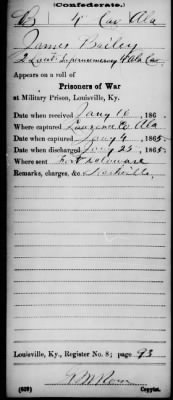 (Confederate.)
B 4 Cav Ala
James Bailey
2 Lieut. Supernumerary 4 Ala Cav.
Appears on a roll of
Prisoners of War
at Military Prison, Louisville, Ky.
Date when received Jany 16, 186
Where captured Lauderdale Co Ala
Date when captured Jany 4, 1865
Date when discharged Jany 23, 1865
Where sent Fort Delaware
Remarks, charges, &c. Nashville
Louisville, Ky., Register No. 8; page 93
(639) Copyist.